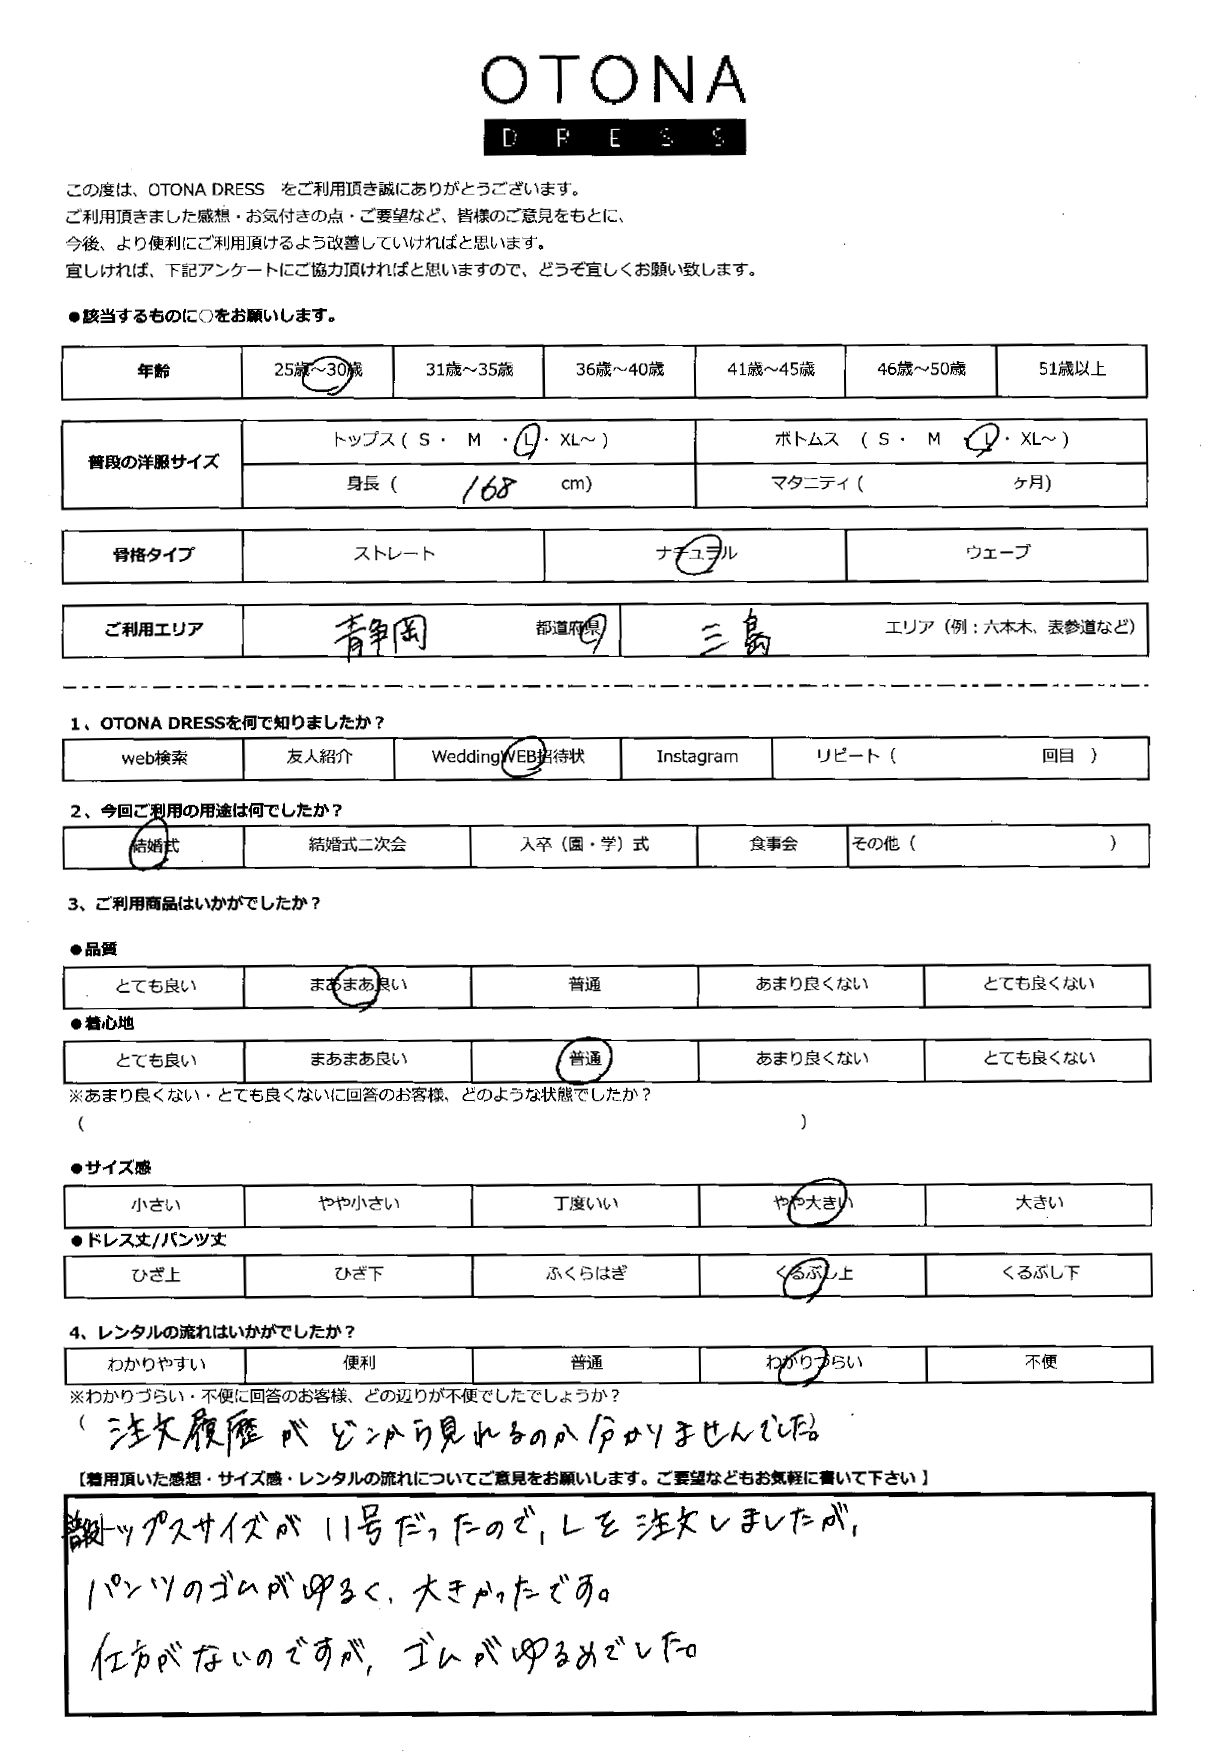 OTONA
DRESS
この度は、OTONA DRESS をご利用頂き誠にありがとうございます。
ご利用頂きました感想・お気付きの点・ご要望など、皆様のご意見をもとに、
今後、より便利にご利用頂けるよう改善していければと思います。
宜しければ、下記アンケートにご協力頂ければと思いますので、どうぞ宜しくお願い致します。
●該当するものに○をお願いします。
年齢 25歳～30歳 31歳～35歳 36歳～40歳 41歳～45歳 46歳～50歳 51歳以上
普段の洋服サイズ トップス ( S ・ M ・ L ・ XL～ ) ボトムス ( S ・ M ・ L ・ XL～ )
身長 ( 168 cm) マタニティ ( ヶ月)
骨格タイプ ストレート ナチュラル ウェーブ
ご利用エリア 静岡 都道府県 三島 エリア（例：六本木、表参道など）
1、OTONA DRESSを何で知りましたか？
web検索 友人紹介 WeddingWEB招待状 Instagram リピート（ 回目 ）
2、今回ご利用の用途は何でしたか？
結婚式 結婚式二次会 入卒（園・学）式 食事会 その他（ ）
3、ご利用商品はいかがでしたか？
●品質
とても良い まあまあ良い 普通 あまり良くない とても良くない
●着心地
とても良い まあまあ良い 普通 あまり良くない とても良くない
※あまり良くない・とても良くないに回答のお客様、どのような状態でしたか？
（ ）
●サイズ感
小さい やや小さい 丁度いい やや大きい 大きい
●ドレス丈/パンツ丈
ひざ上 ひざ下 ふくらはぎ くるぶし上 くるぶし下
4、レンタルの流れはいかがでしたか？
わかりやすい 便利 普通 わかりづらい 不便
※わかりづらい・不便に回答のお客様、どの辺りが不便でしたでしょうか？
（ 注文履歴がどこから見れるのか分かりませんでした。
【着用頂いた感想・サイズ感・レンタルの流れについてご意見をお願いします。ご要望などもお気軽に書いて下さい】
普段トップスサイズが11号だったので、Lを注文しましたが、
パンツのゴムがゆるく、大きかったです。
仕方がないのですが、ゴムがゆるめでした。